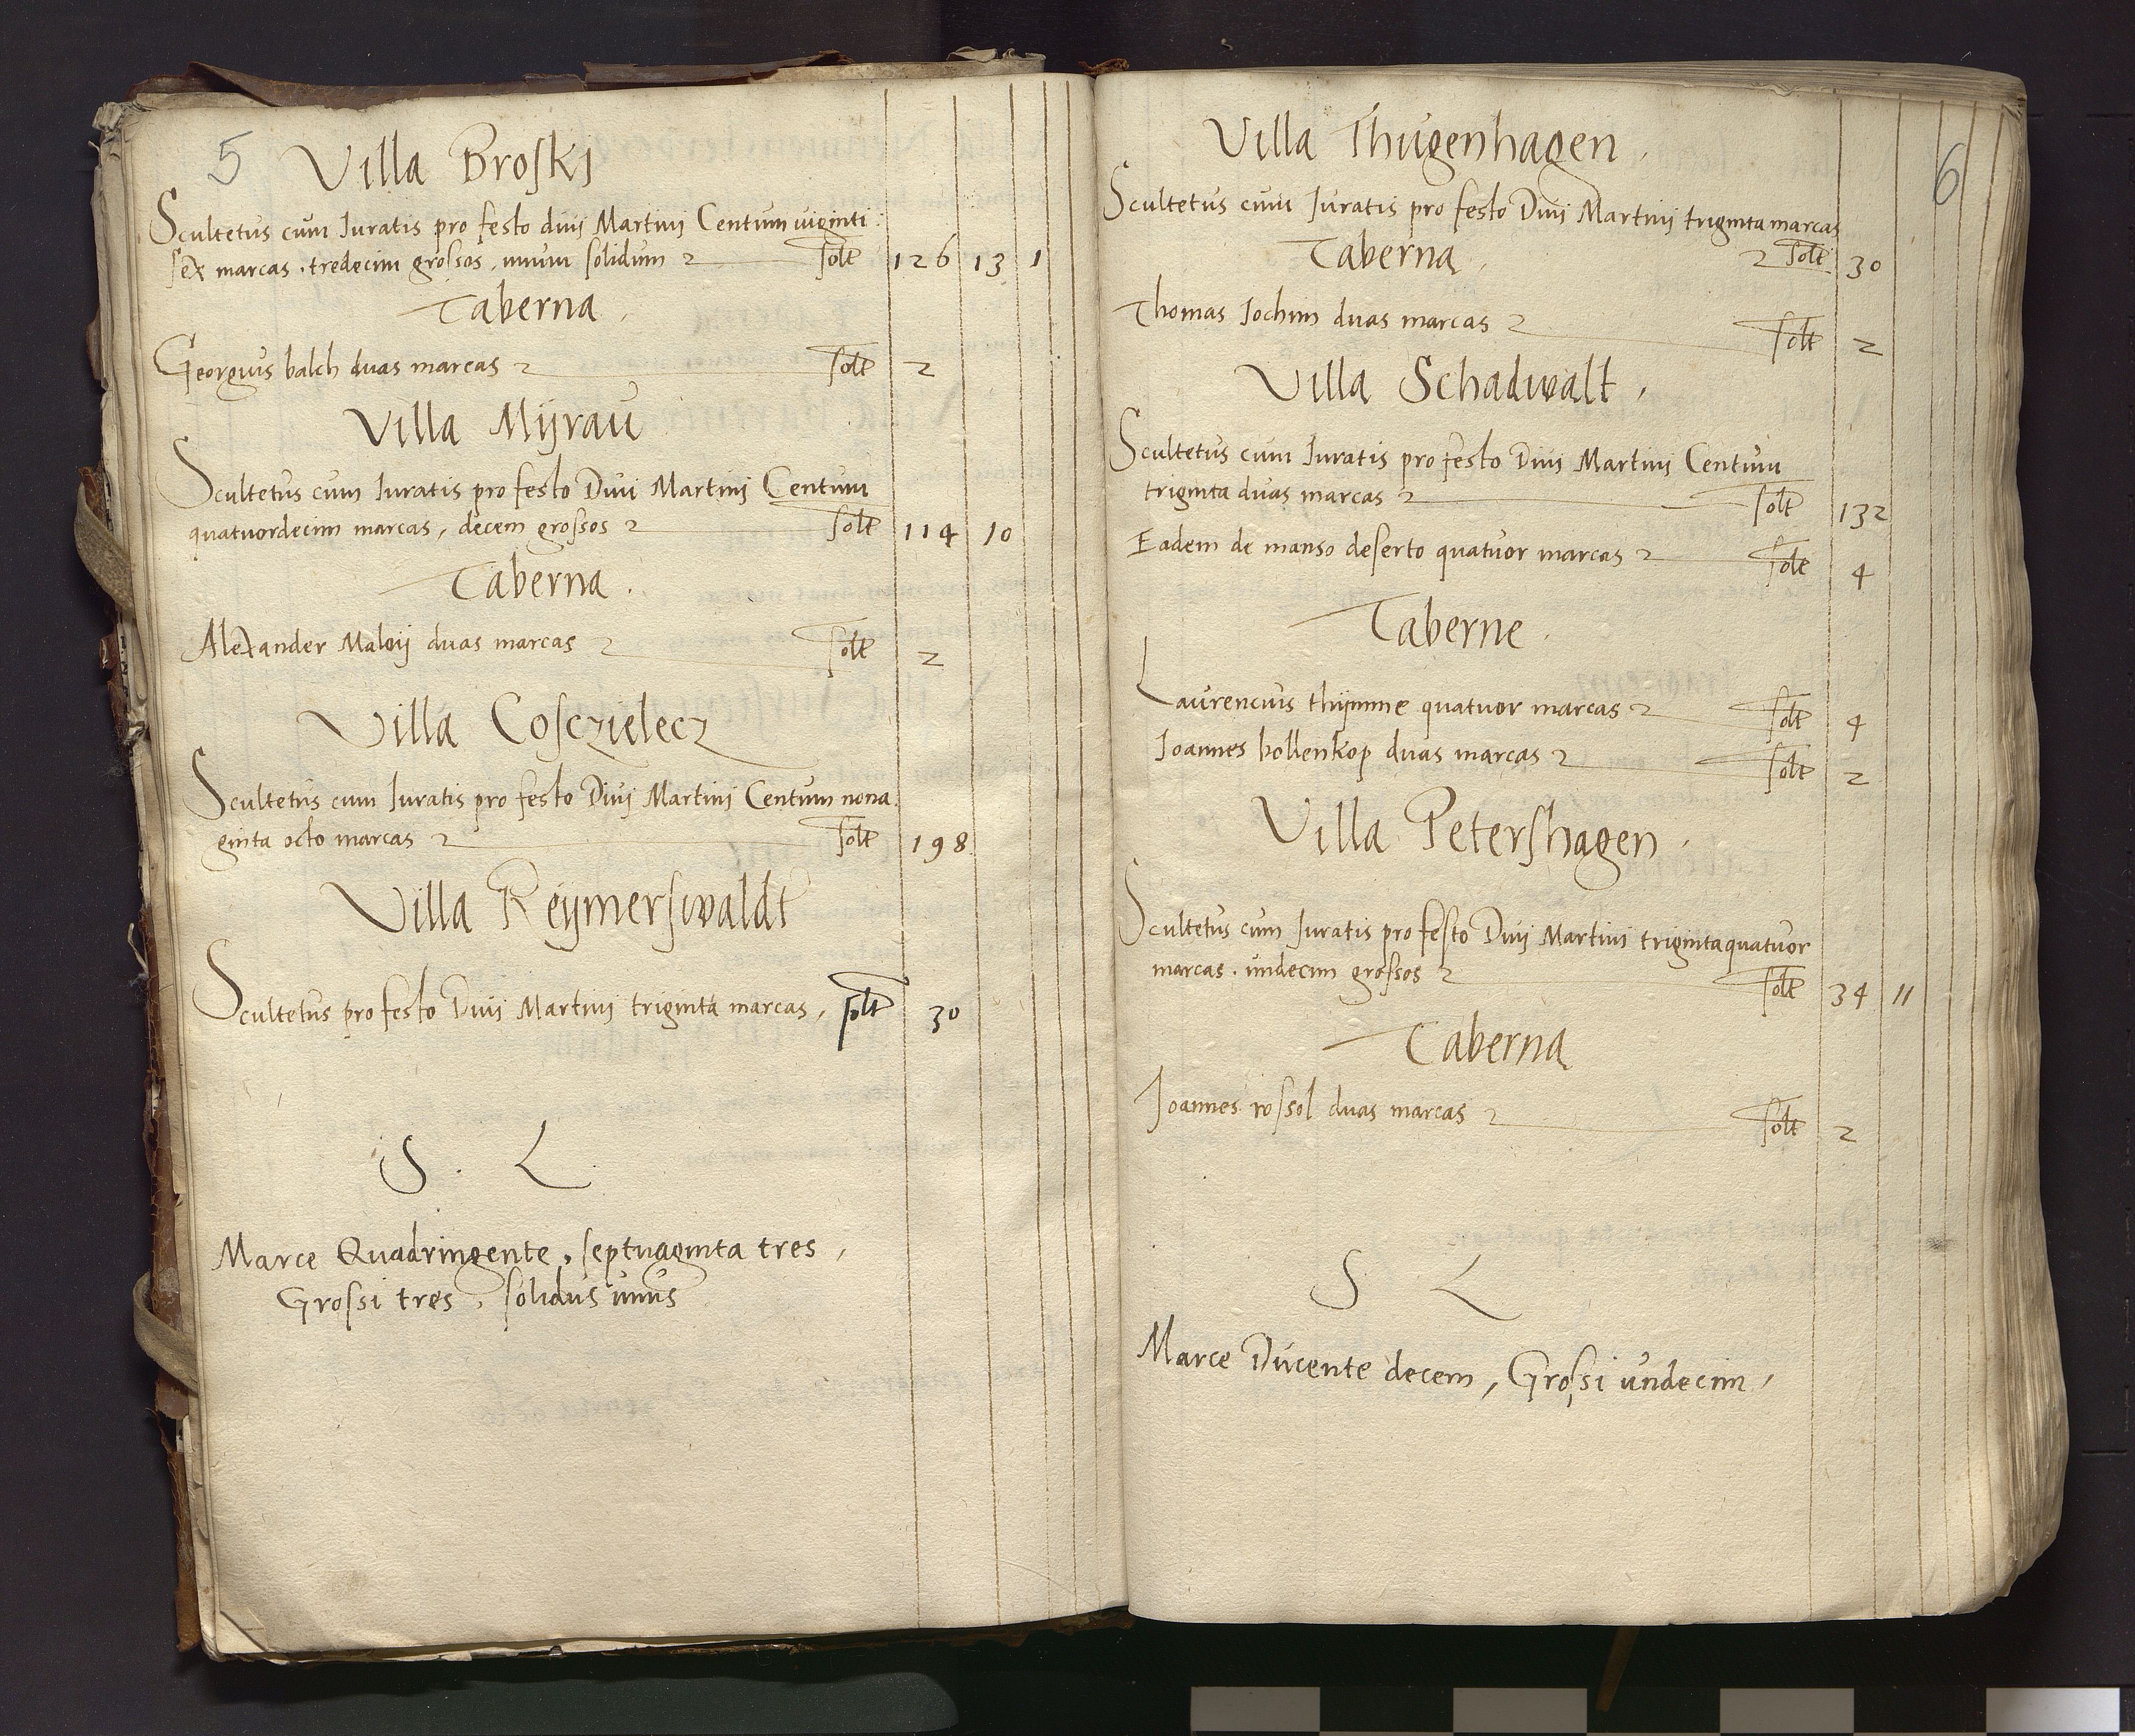 5 Villa Broski
Scultetus cum Iuratis pro festo diui Martinj Centum uiginti
sex marcas. tredecim grossos, unum solidum solt 126 13 1
Taberna.
Georgius balch duas marcas solt 2
Villa Mÿrau
Scultetus cum Iuratis pro festo Diui Martinj Centum
quatuordecim marcas, decem grossos solt 114 10
Taberna.
Alexander Maloij duas marcas solt 2
Villa Cosczielecz
Scultetus cum Iuratis pro festo Diuj Martinj Centum nona
ginta octo marcas solt 198
Villa Reÿmerswaldt
Scultetus pro festo Diuj Martinj triginta marcas, solt 30
S. L.
Marce Quadringente, septuaginta tres,
Grossi tres, solidus unus
6
Villa Thugenhagen.
Scultetus cum Iuratis pro festo Diuj Martinj triginta marcas
Taberna, solt 30
Thomas Iochim duas marcas solt 2
Villa Schadwalt,
Scultetus cum Iuratis pro festo Diuj Martinj Centum
triginta duas marcas solt 132
Eadem de manso deserto quatuor marcas solt 4
Taberne.
Laurencius thÿmme quatuor marcas solt 4
Ioannes bollenkop duas marcas solt 2
Villa Petershagen.
Scultetus cum Iuratis pro festo Diuj Martinj trigintaquatuor
marcas. undecim grossos solt 34 11
Taberna
Ioannes rossol duas marcas solt 2
S L
Marce Ducente decem, Grossi undecim,